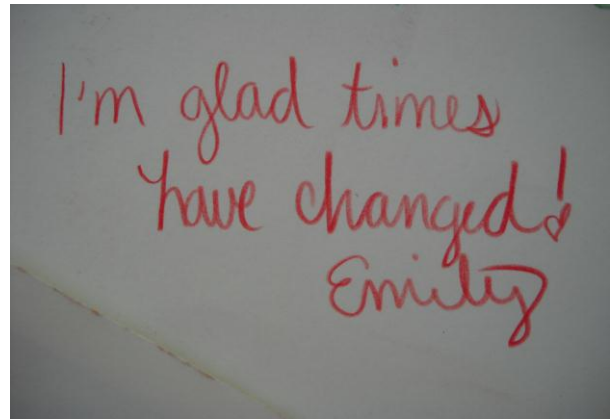 I'm glad times
have changed!
Emily